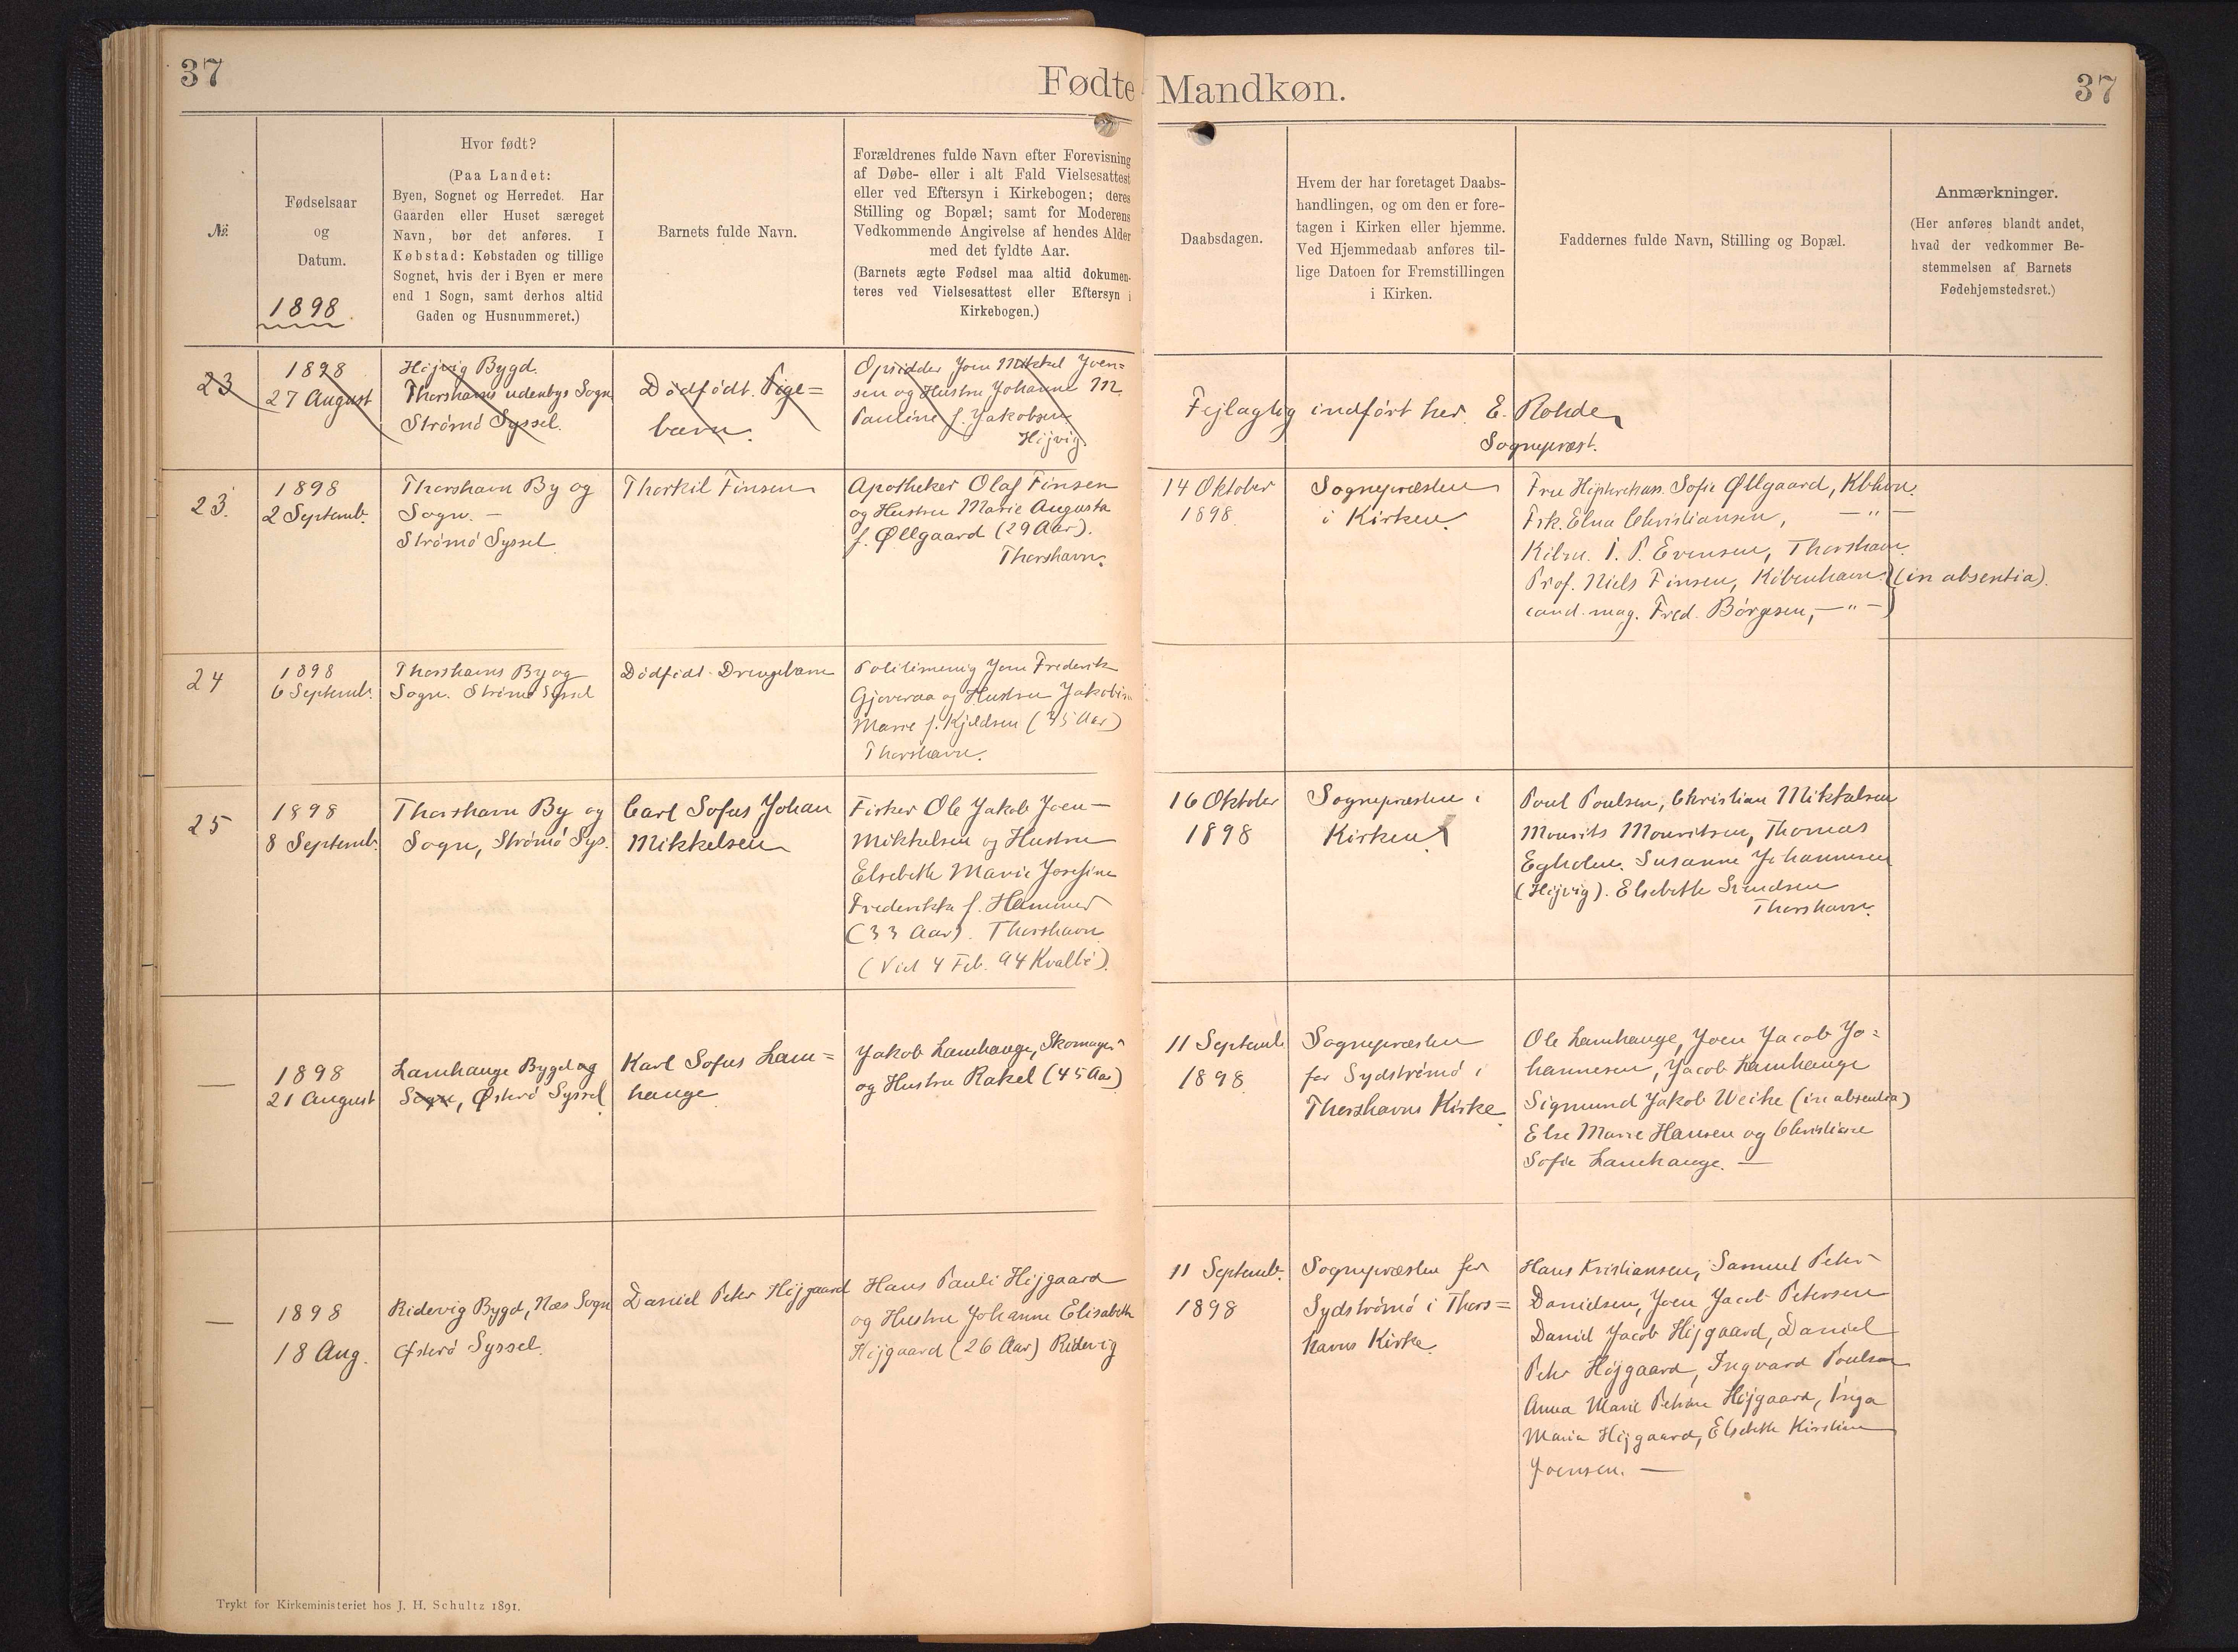 37
Fødte Mandkøn.
37
№
Fødselsaar
og
Datum.
1898.
Hvor født?
(Paa Landet:
Byen, Sognet og Herredet. Har
Gaarden eller Huset særeget
Navn, bør det anføres. I
Købstad: Købstaden og tillige
Sognet, hvis der i Byen er mere
end 1 Sogn, samt derhos altid
Gaden og Husnummeret.)
Barnets fulde Navn.
Forældrenes fulde Navn efter Forevisning
af Døbe- eller i alt Fald Vielsesattest
eller ved Eftersyn i Kirkebogen; deres
Stilling og Bopæl; samt for Moderens
Vedkommende Angivelse af hendes Alder
med det fyldte Aar.
(Barnets ægte Fødsel maa altid dokumen-
teres ved Vielsesattest eller Eftersyn i
Kirkebogen.)
Daabsdagen.
Hvem der har foretaget Daabs-
handlingen, og om den er fore-
tagen i Kirken eller hjemme.
Ved Hjemmedaab anføres til-
lige Datoen for Fremstillingen
i Kirken.
Faddernes fulde Navn, Stilling og Bopæl.
Anmærkninger.
(Her anføres blandt andet,
hvad der vedkommer Be-
stemmelsen af Barnets
Fødehjemstedsret.)
23
1898
27 August
Højvig Bygd.
Thorshavns udenbys Sogn
Strømø Syssel.
Dødfødt. Pige=
barn.
Opsidder Joen Mikkel Joen=
sen og Hustru Johanne M.
Pauline f. Jakobsen.
Højvig.
Fejlagtig indført her. E. Rohde,
Sognepræst.
23.
1898
2 Septemb.
Thorshavn By og
Sogn. —
Strømø Syssel.
Thorkil Finsen
Apotheker Olaf Finsen
og Hustru Marie Augusta
f. Øllgaard (29 Aar).
Thorshavn.
14 Oktober
1898.
Sognepræsten
i Kirken.
Fru Sofie Øllgaard, Kbhvn.
Frk. Elna Christiansen, — " —
Kbm. P. Evensen, Thorshavn.
Prof. Niels Finsen, København. (in absentia).
cand. mag. Fred. Børgesen, — " —
24
1898
6 Septemb.
Thorshavns By og
Sogn. Strømø Syssel
Dødfødt. Drengebarn
Politimenig Joen Frederik
Gjoveraa og Hustru Jakobine
Marie f. Kjeldsen (35 Aar)
Thorshavn.
25
1898
8 Septemb.
Thorshavn By og
Sogn, Strømø Sys.
Carl Sofus Johan
Mikkelsen
Fisker Ole Jakob Joen
Mikkelsen og Hustru
Elsebeth Marie Josefine
Frederikka f. Hammer
(33 Aar). Thorshavn
(Viet 4 Feb. 94 Kvalbø).
16 Oktober
1898
Sognepræsten i
Kirken.
Poul Poulsen, Christian Mikkelsen
Mourits Mouritsen, Thomas
Egholm. Susanne Johannesen
(Højvig). Elsebeth
Thorshavn.
—
1898
21 August
Lamhauge Bygd og
Sogn, Østerø Syssel.
Karl Sofus Lam=
hauge
Jakob Lamhauge, Skomager
og Hustru Rakel (45 Aar)
11 Septemb.
1898
Sognepræsten
for Sydstrømø i
Thorshavns Kirke.
Ole Lamhauge, Joen Jacob Jo=
hannesen, Jacob Lamhauge
Sigmund Jakob Weihe (in absentia)
Else Marie Hansen og Christiane
Sofie Lamhauge. —
—
1898
18 Aug.
Ridevig Bygd, Næs Sogn
Østerø Syssel.
Daniel Peter Højgaard
Hans Pauli Højgaard
og Hustru Johanne Elisabeth
Højgaard (26 Aar) Ridevig
11 Septemb.
1898
Sognepræsten for
Sydstrømø i Thors=
havns Kirke.
Hans Kristiansen, Samuel Peter
Danielsen, Joen Jacob Petersen
Daniel Jacob Højgaard, Daniel
Peter Højgaard, Ingvard Poulsen
Anna Marie Højgaard, Inga
Maria Højgaard, Elsebeth Kirstine
Joensen. —
Trykt for Kirkeministeriet hos J. H. Schultz 1891.